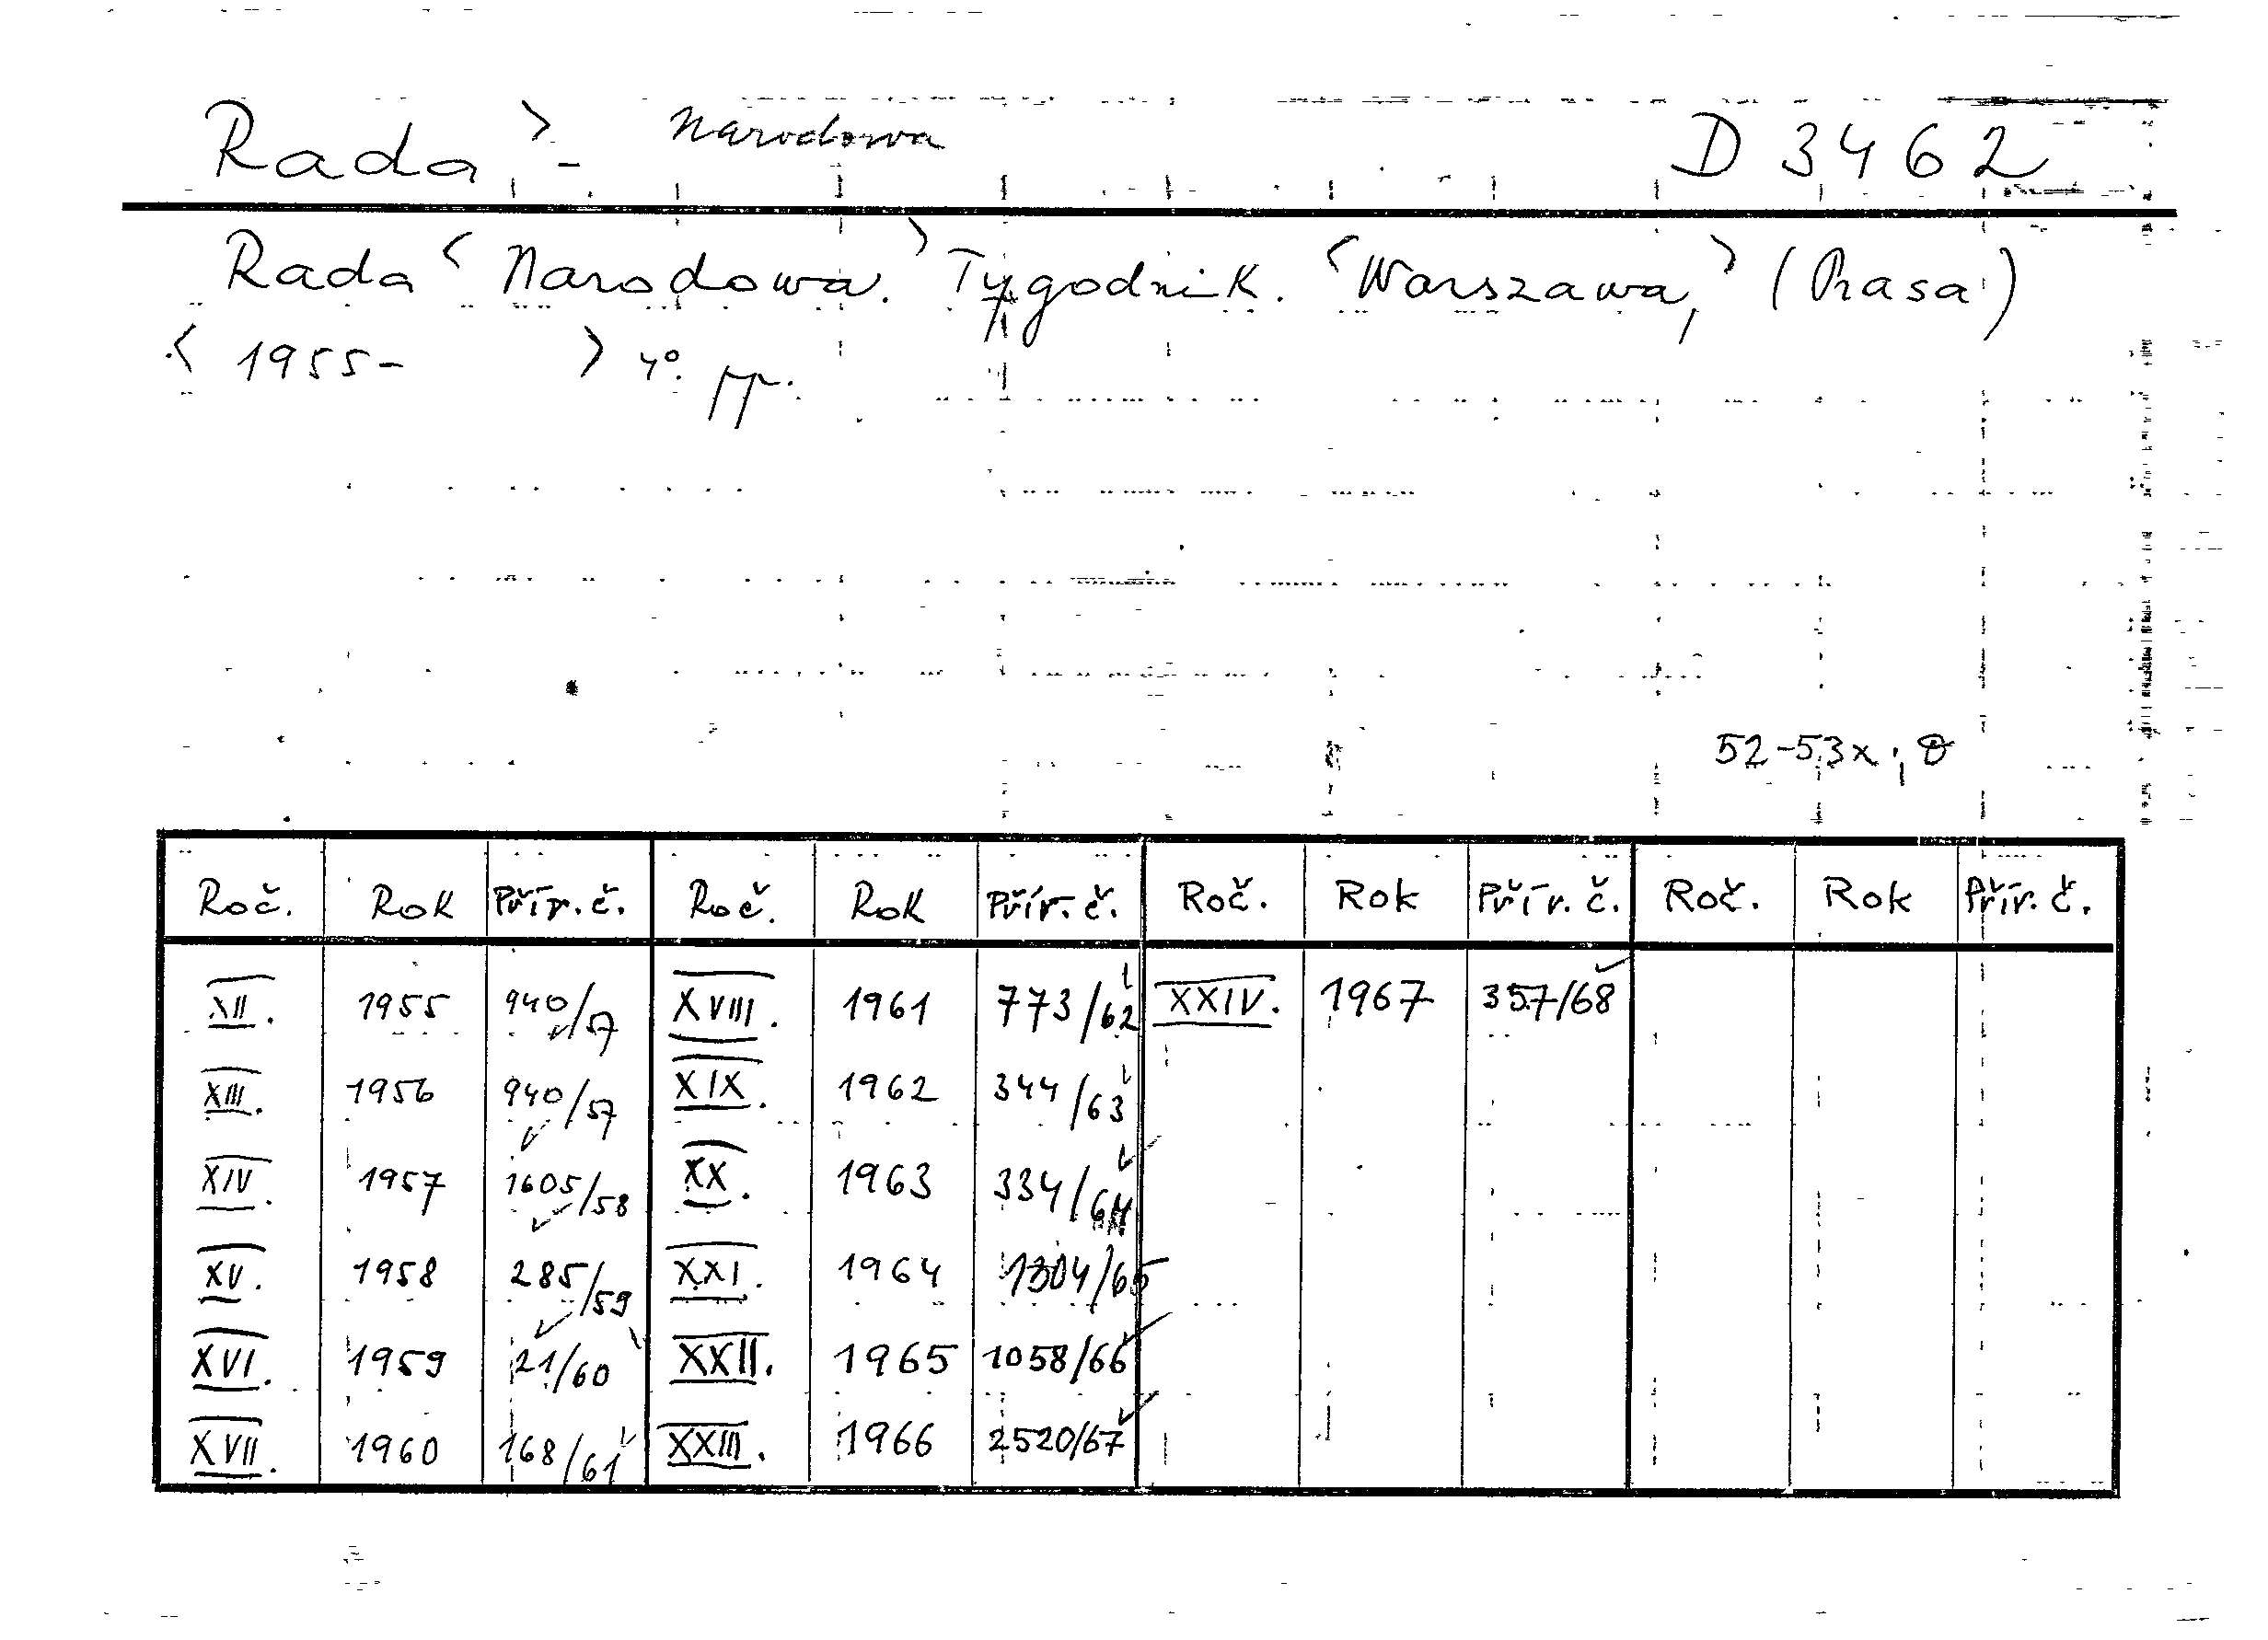 Rada > - Narodowa D 3462
Rada < Narodowa. > Tygodnik. < Warszawa, > (Prasa)
< 1955- > 4°. pp.
52-53x;
Roč. Rok Přír. č. Roč. Rok Přír. č. Roč. Rok Přír. č. Roč. Rok Přír. č.
XII. 1955 940/57 XVIII. 1961 773/62 XXIV. 1967 357/68
XIII. 1956 940/57 XIX. 1962 344/63
XIV. 1957 1605/58 XX. 1963 334/64
XV. 1958 285/59 XXI. 1964 1304/65
XVI. 1959 21/60 XXII. 1965 1058/66
XVII. 1960 168/61 XXIII. 1966 2520/67